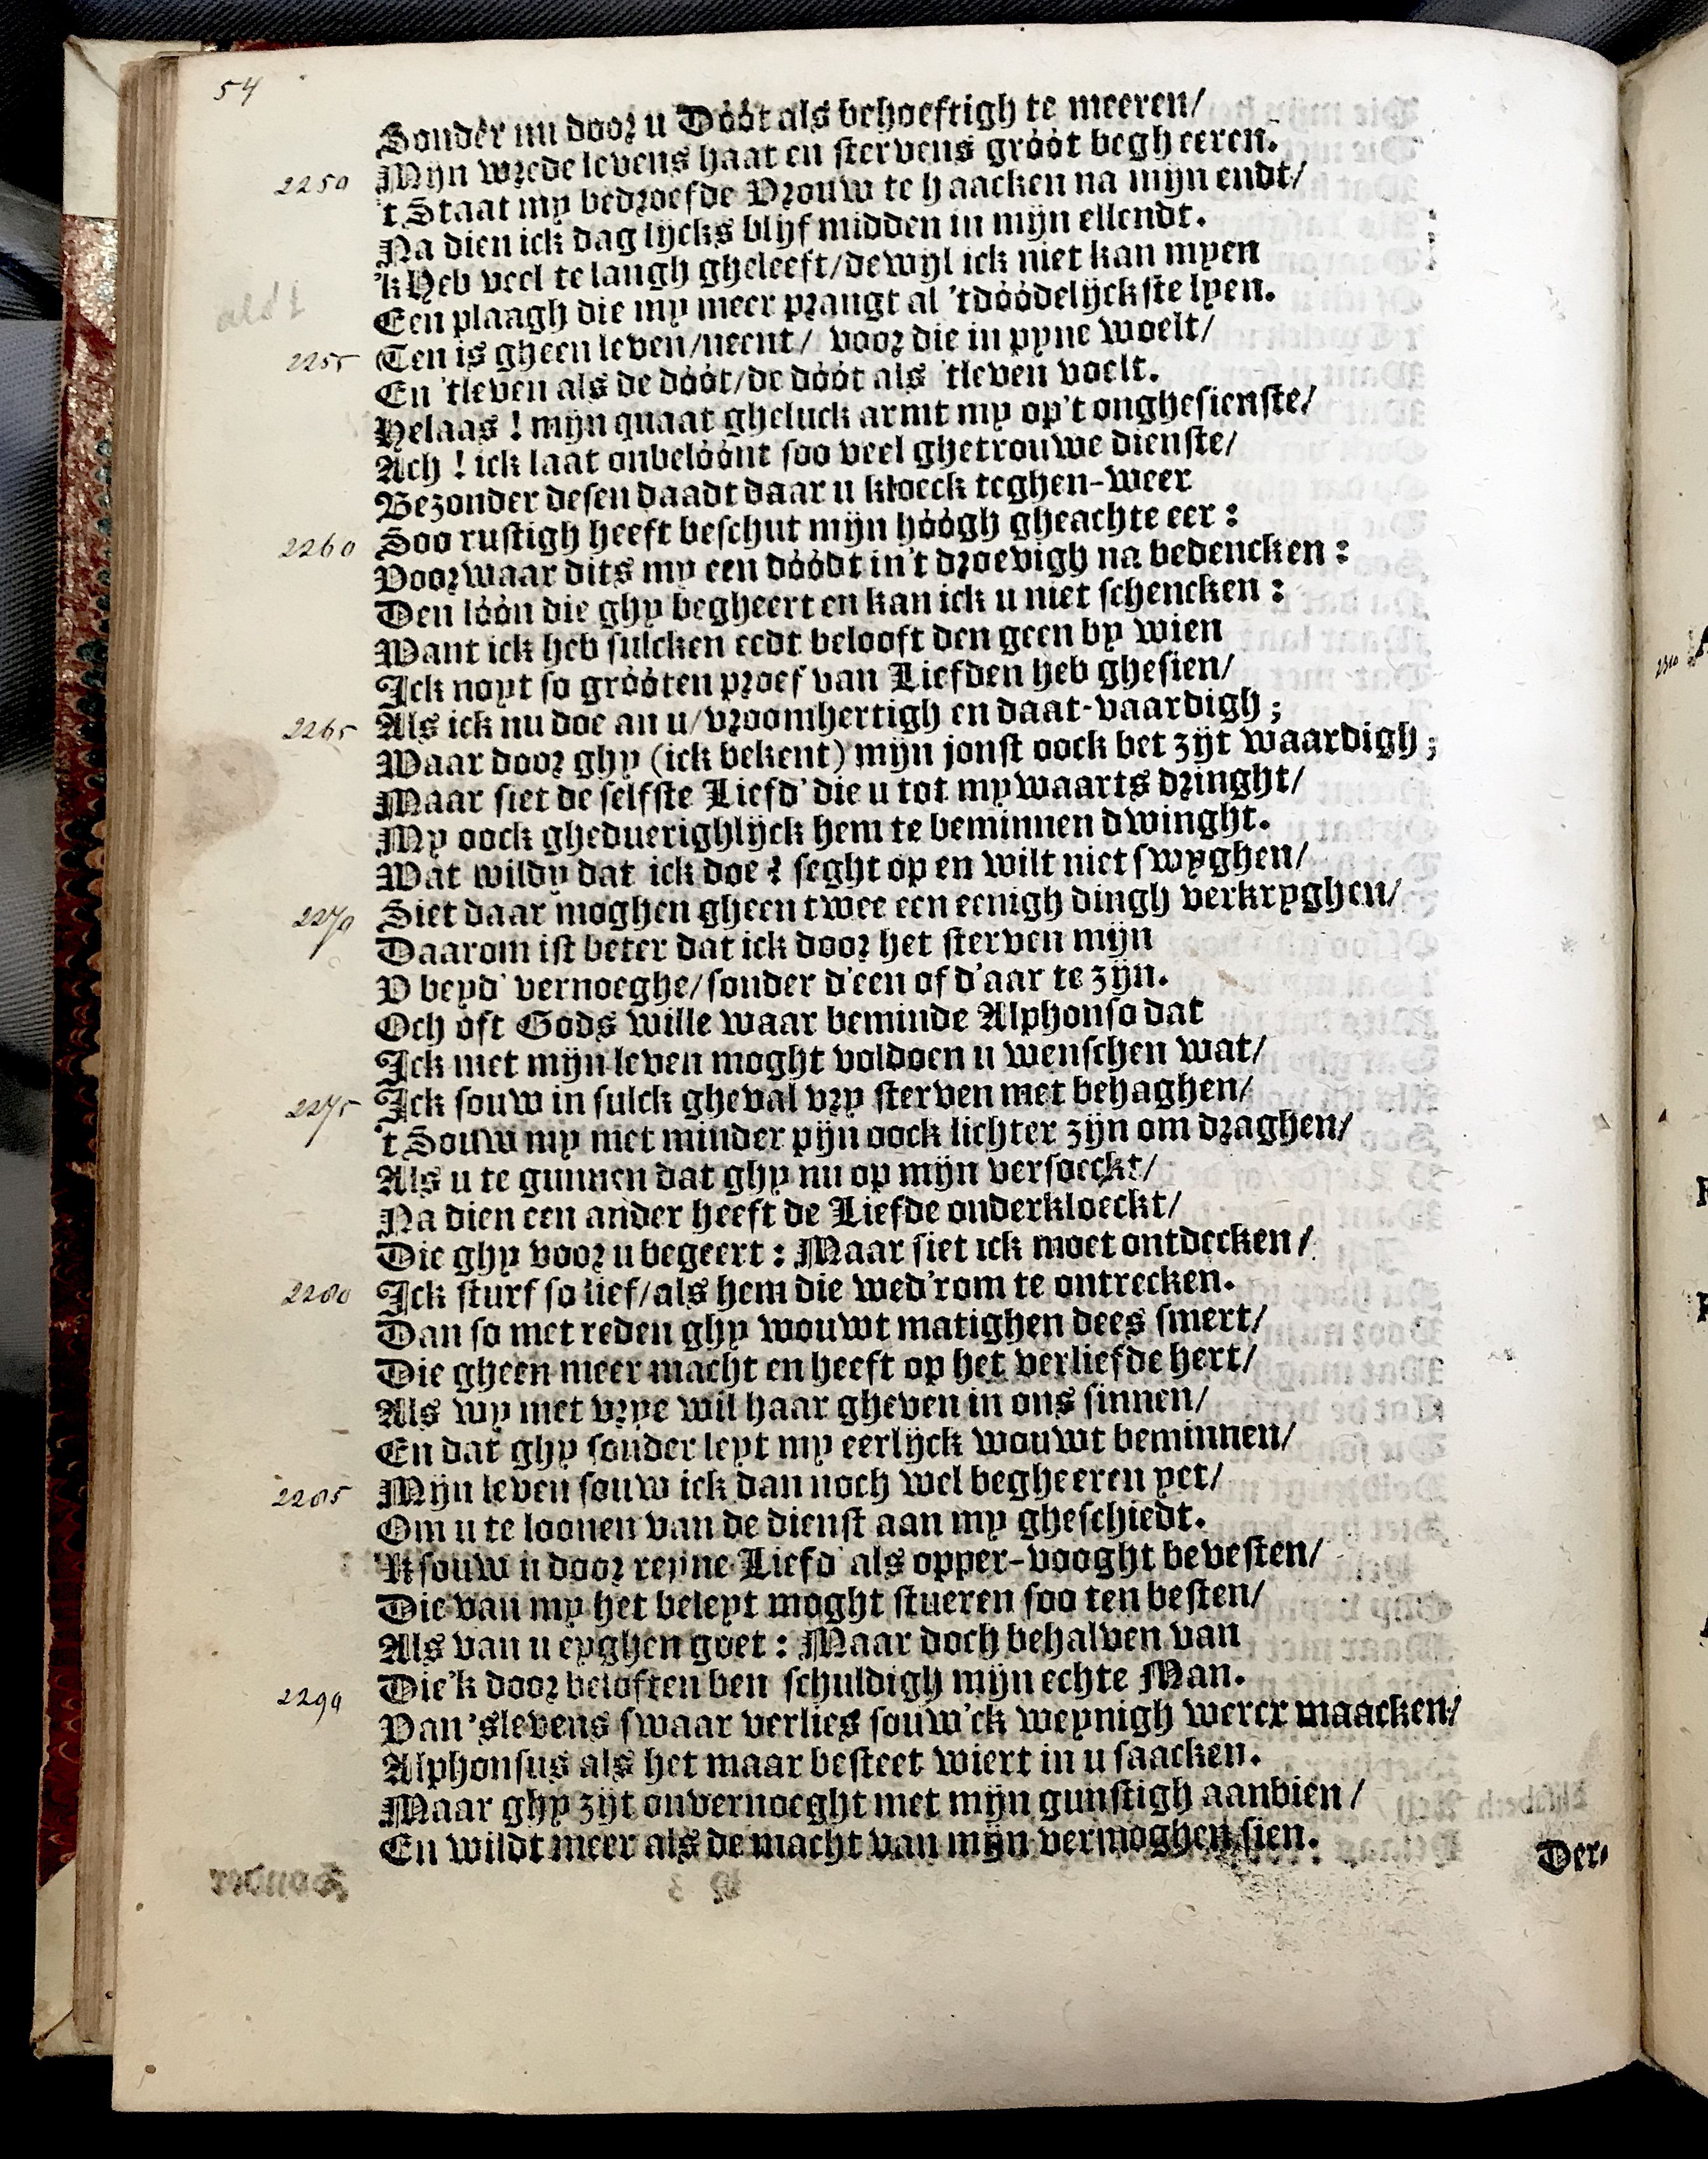 54
Sonder nu door u Dóót als behoeftigh te meeren/
2250 Mijn wrede levens haat en stervens gróót begheeren.
't Staat my bedroefde Vrouw te haacken na mijn endt/
Na dien ick daglijcks blijf midden in mijn ellendt.
'k Heb veel te langh gheleeft/dewijl ick niet kan myen
Een plaagh die my meer prangt al 'tdóódelijckste lyen.
2255 Ten is gheen leven/neent/ voor die in pyne woelt/
En 'tleven als de dóót/de dóót als 'tleven voelt.
Helaas ! mijn quaat gheluck armt my op't onghesienste/
Ach ! ick laat onbelóónt soo veel ghetrouwe dienste/
Bezonder desen daadt daar u kloeck teghen-weer
2260 Soo rustigh heeft beschut mijn hóógh gheachte eer :
Voorwaar dits my een dóódt in't droevigh na bedencken :
Den lóón die ghy begheert en kan ick u niet schencken :
Want ick heb sulcken eedt belooft den geen by wien
Ick noyt so gróóten proef van Liefden heb ghesien/
2265 Als ick nu doe an u/vroomhertigh en daat-vaardigh ;
Waar door ghy (ick bekent) mijn jonst oock bet zijt waardigh ;
Maar siet de selfste Liefd' die u tot mywaarts dringht/
My oock gheduerighlijck hem te beminnen dwinght.
Wat wildy dat ick doe ? seght op en wilt niet swyghen/
2270 Siet daar moghen gheen twee een eenigh dingh verkryghen/
Daarom ist beter dat ick door het sterven mijn
V beyd' vernoeghe/sonder d'een of d'aar te zijn.
Och oft Gods wille waar beminde Alphonso dat
Ick met mijn leven moght voldoen u wenschen wat/
2275 Ick souw in sulck gheval vry sterven met behaghen/
't Souw my met minder pijn oock lichter zijn om draghen/
Als u te gunnen dat ghy nu op mijn versoeckt/
Na dien een ander heeft de Liefde onderkloeckt/
Die ghy voor u begeert : Maar siet ick moet ontdecken/
2280 Ick sturf so lief/als hem die wed'rom te ontrecken.
Dan so met reden ghy wouwt matighen dees smert/
Die gheen meer macht en heeft op het verliefde hert/
Als wy met vrye wil haar gheven in ons sinnen/
En dat ghy sonder leyt my eerlijck wouwt beminnen/
2285 Mijn leven souw ick dan noch wel begheeren yet/
Om u te loonen van de dienst aan my gheschiedt.
'K souw u door reyne Liefd' als opper-vooght bevesten/
Die van my het beleyt moght stueren soo ten besten/
Als van u eyghen goet : Maar doch behalven van
2290 Die'k door beloften ben schuldigh mijn echte Man.
Van 'slevens swaar verlies souw'ck weynigh wercx maacken/
Alphonsus als het maar besteet wiert in u saacken.
Maar ghy zijt onvernoeght met mijn gunstigh aanbien/
En wildt meer als de macht van mijn vermoghen sien.
Der-